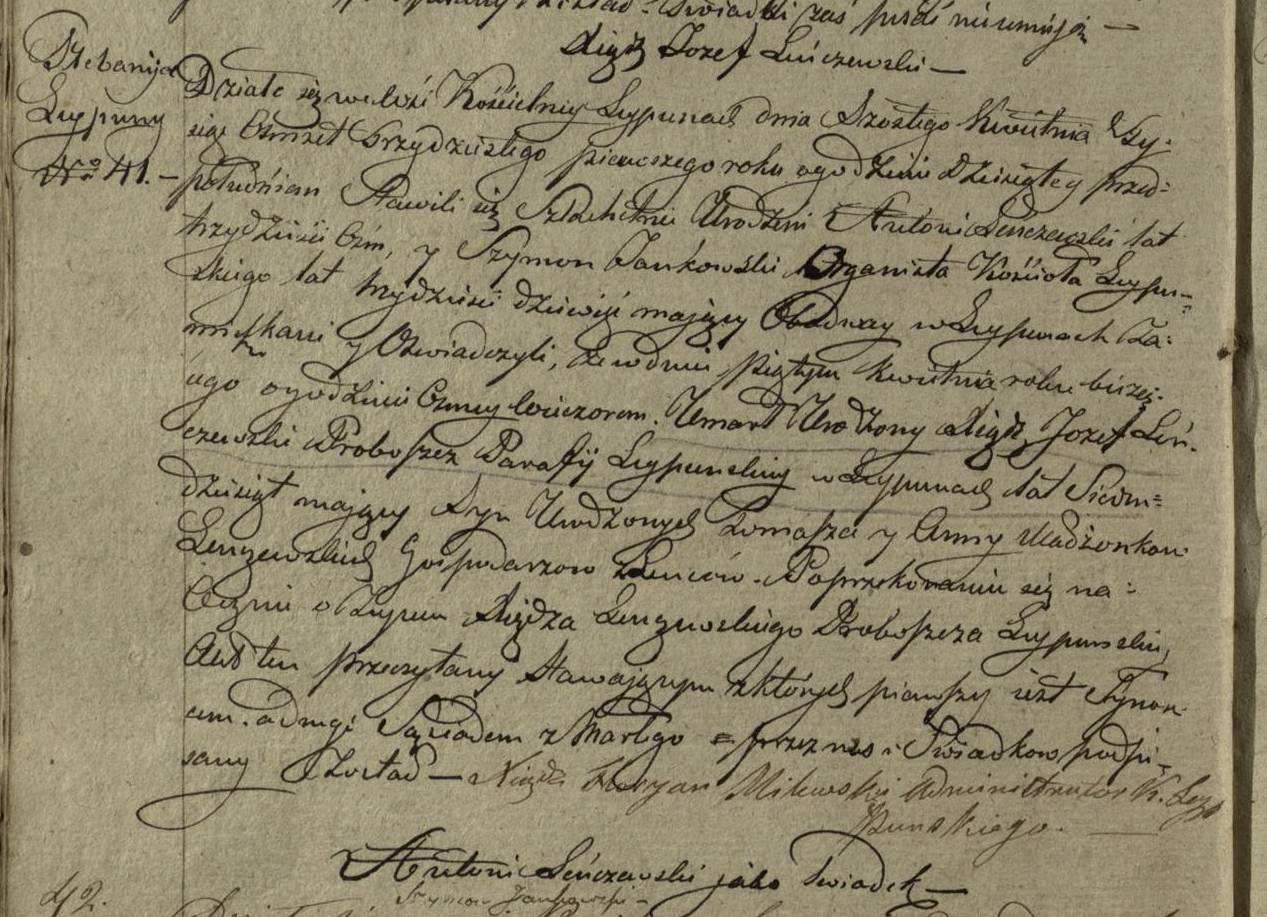 podpisany został. Świadki zaś pisać nieumieją —
Xiądz Jozef Leńczewski —
Plebanija
Leypuny
No 41. —
Działo się we wsi Kościelney Leypunach dnia Szostego Kwietnia Ty-
siąc Ośmset Trzydziestego pierwszego roku o godzinie Dziesiątey przed-
południem Stawili się Szlachetnie Urodzeni Antoni Leńczewski lat
trzydzieści Ośm, y Szymon Jankowski Organista Kościoła Leypuń-
skiego lat trzydzieści dziewięć maiący Obadway w Leypunach Za-
mieszkani y Oświadczyli, że w dniu piątym Kwietnia roku bieżą-
cego o godzinie Osmey wieczorem. Umarł Urodzony Xiądz Jozef Leń-
czewski Proboszcz Parafij Leypunskiey w Leypunach lat Siedm-
dziesiąt maiący Syn Urodzonych Tomasza y Anny Małżonkow
Lenczewskich Gospodarzow z Po przekonaniu się na-
ocznie o Zeyściu Xiędza Lenczewskiego Proboszcza Leypunskie,
Akt ten przeczytany Stawaiącym z których pierwszy iest Synow-
cem. a drugi Sąsiadem zmarłego = przez nas i Swiadkow podpi-
sany Został — Xiądz Floryan Milewski Administrator K. Ley-
punskiego. —
Antoni Leńczewski jako Swiadek —
Szymon Jankowski —
42.